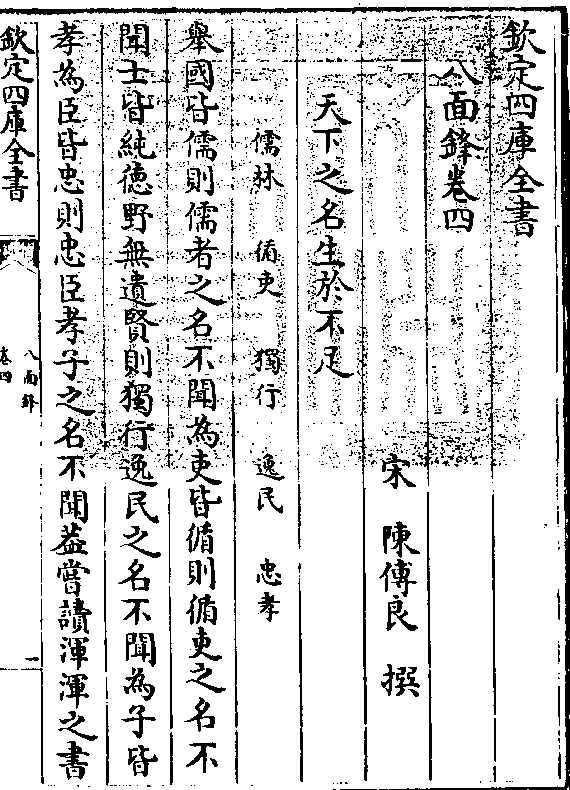 欽定四庫全書
八面鋒卷四
宋 陳傅良 撰
天下之名生於不足
儒林 循吏 獨行 逸民 忠孝
舉國皆儒則儒者之名不聞為吏皆循則循吏之名不
聞士皆純徳野無遺賢則獨行逸民之名不聞為子皆
孝為臣皆忠則忠臣孝子之名不聞葢嘗讀渾渾之書
欽定四庫全書
八面鋒
卷四
一